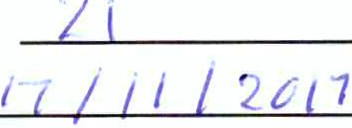 21
17/11/2017